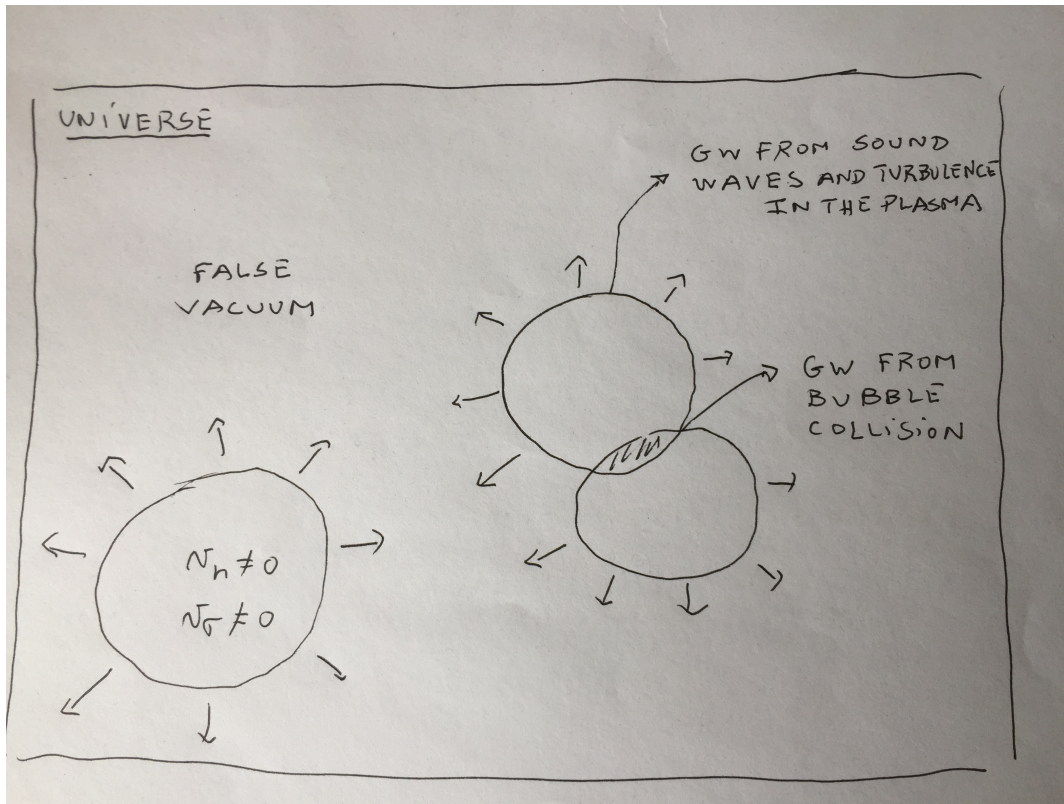 UNIVERSE
GW FROM SOUND
WAVES AND TURBULENCE
IN THE PLASMA
FALSE
VACUUM
GW FROM
BUBBLE
COLLISION
v_h ≠ 0
v_σ ≠ 0